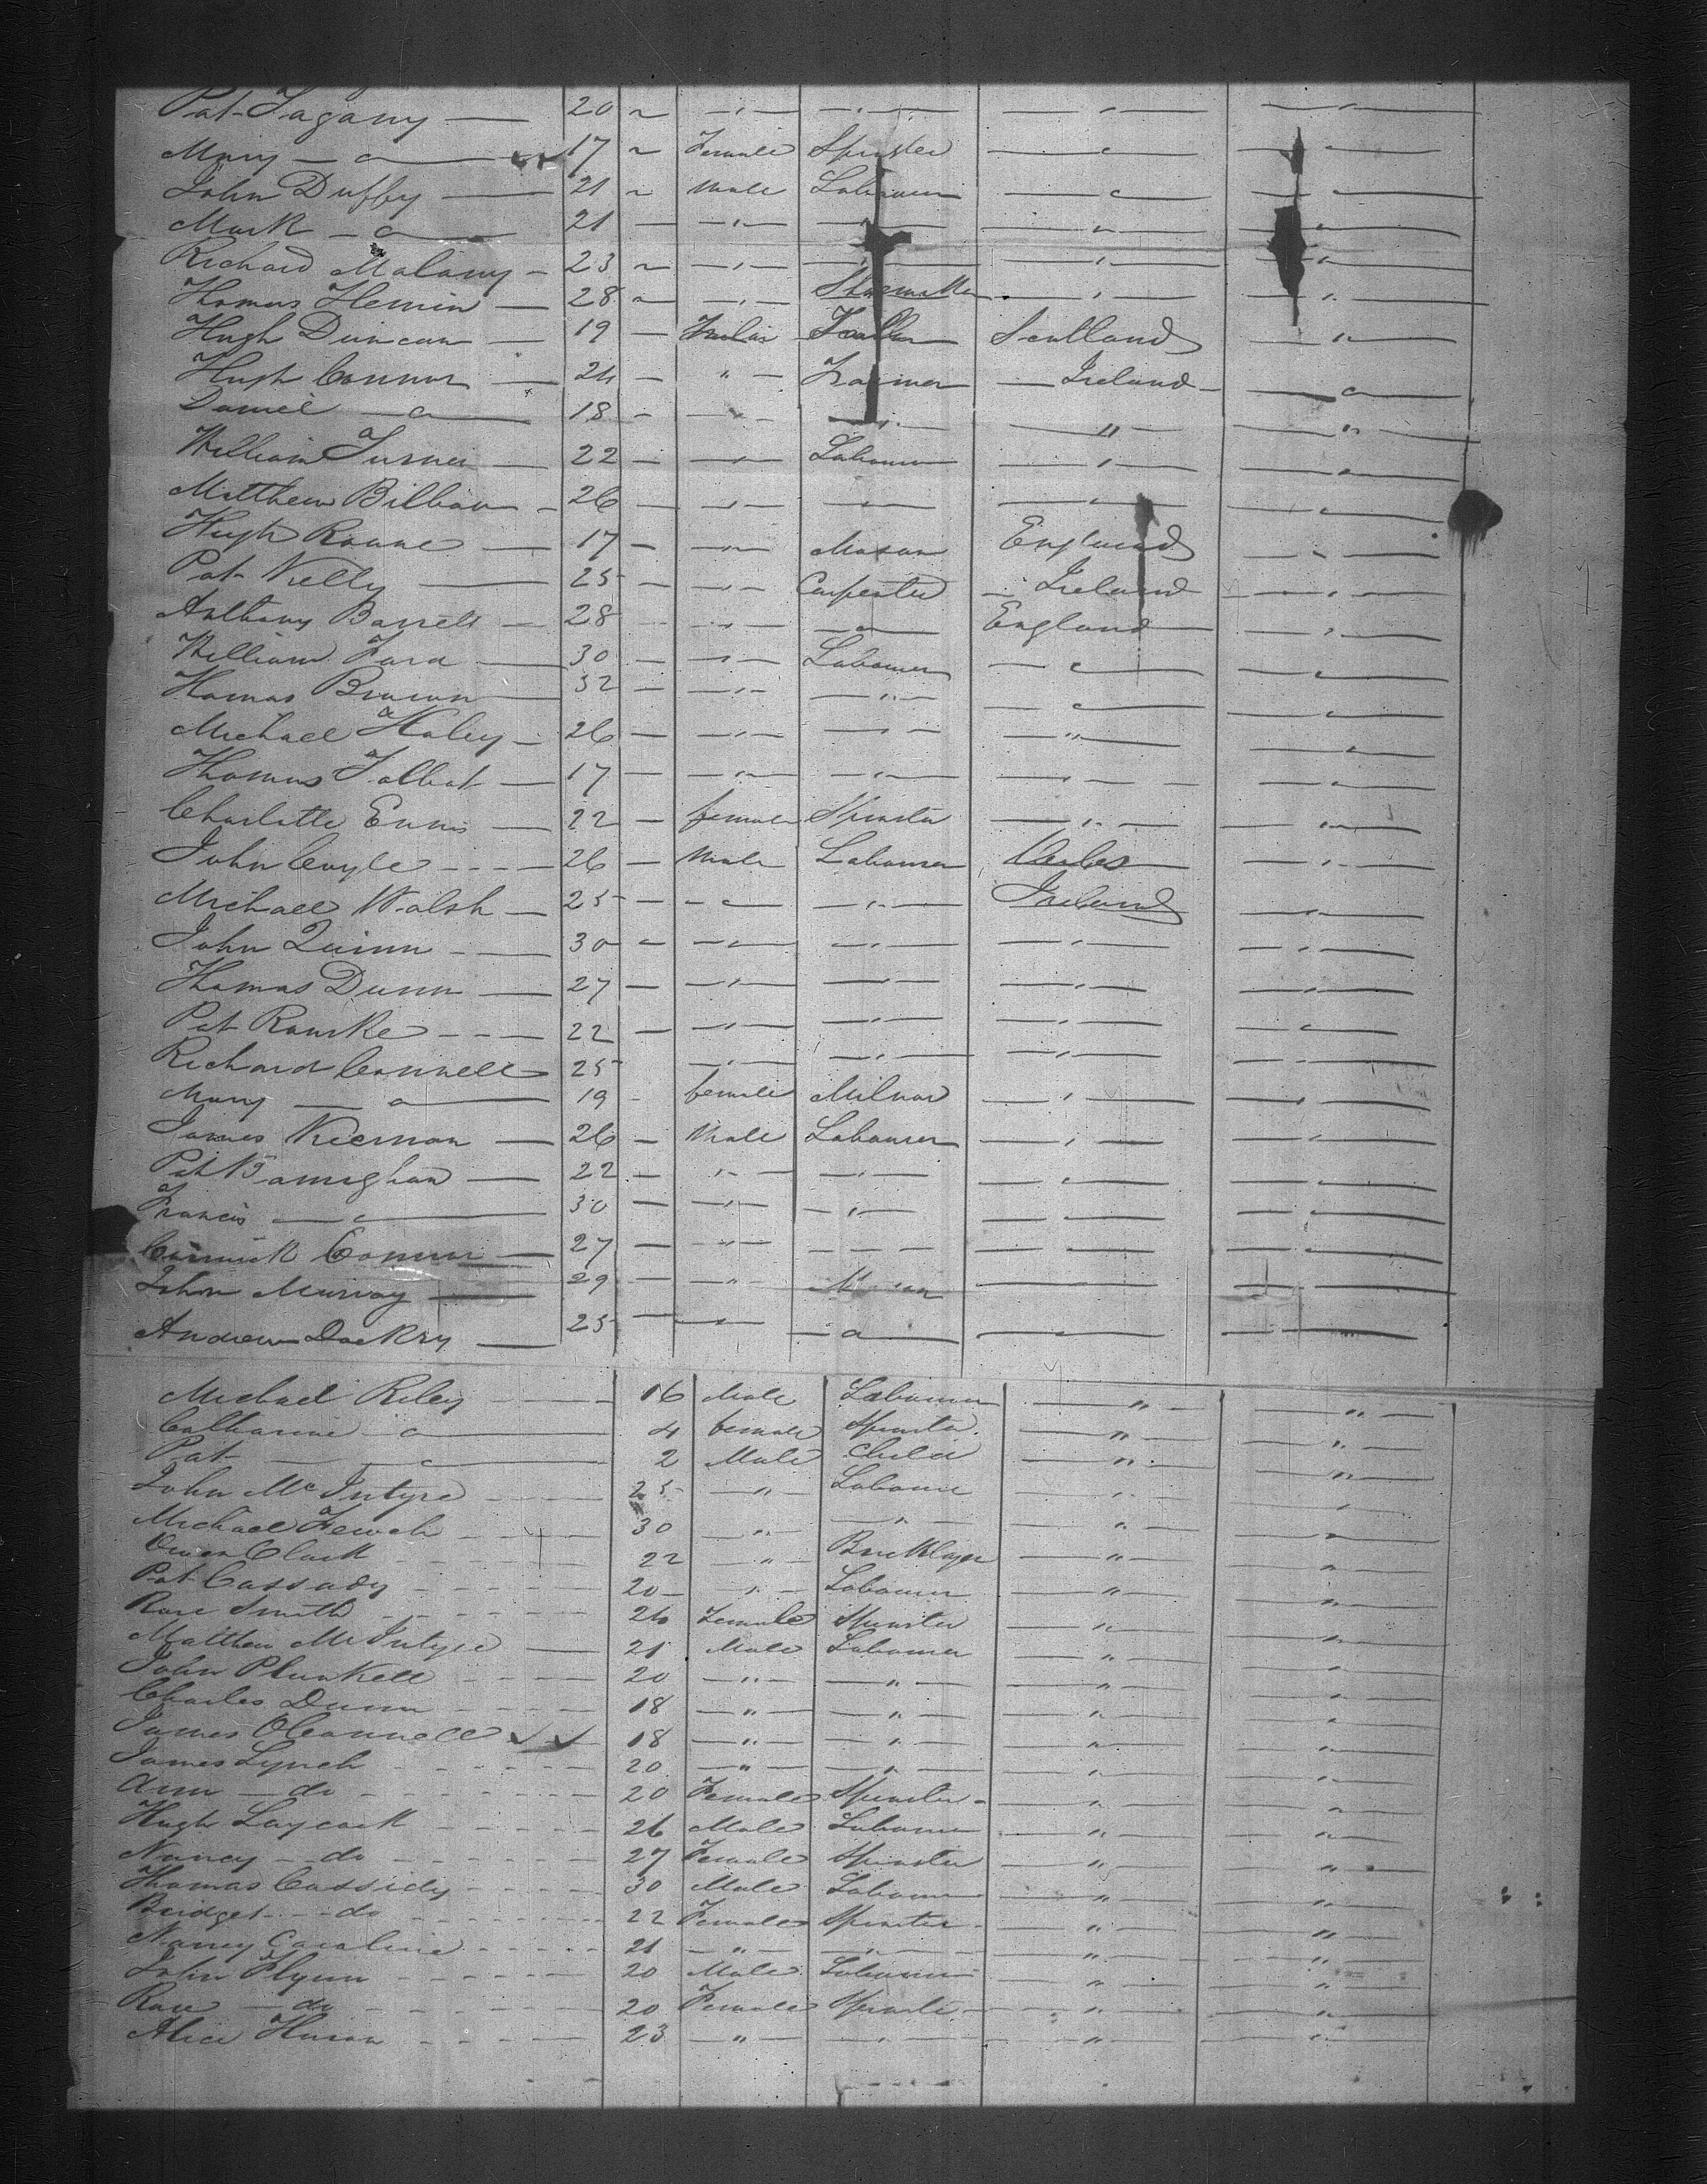 Pat Fagany — 20 ~ — " — — " — — " — — " —
Mary — a — 17 ~ Female Spinster — " — — " —
John Duffy — 21 ~ Male Labourer — " — — " —
Mark — a — 21 — — " — — " — — " —
Richard Malany — 23 ~ — " — — " — — " —
Thomas — 28 — " — Shoemaker — " — — " —
Hugh Duncan — 19 — Scotland — " —
Hugh Connor — 24 — " — Farmer — Ireland — — " —
Daniel — a — 18 — — " — — " — — " — — " —
William Turner — 22 — — " — Labourer — " — — " —
Matthew — 26 — — " — — " — — " — — " —
Hugh — 17 — — " — Mason England — " —
Pat Kelly — 25 — — " — Carpenter — Ireland — — " —
Anthony Barrett — 28 — " — — a — England — — " —
William Ford — 30 — — " — Labourer — " — — " —
Thomas Brown — 32 — — " — — " — — " — — " —
Michael Haley — 26 — — " — — " — — " — — " —
Thomas Talbot — 17 — — " — — " — — " — — " —
Charlotte Ennis — 22 — female Spinster — " — — " —
John Coyle - - - 26 — Male Labourer Wales — " —
Michael Walsh — 25 — — " — — " — Ireland — " —
John Quinn — 30 — — " — — " — — " — — " —
Thomas Dunn — 27 — — " — — " — — " — — " —
Pat Rourke - - - 22 — — " — — " — — " — — " —
Richard Connell 25 — " — — " — — " — — " —
Mary — a — 19 - female — " — — " —
James Kiernan — 26 — Male Labourer — " — — " —
Pat — 22 — — " — — " — — " — — " —
Francis — a — 30 — — " — — " — — " — — " —
Connor — 27 — — " — — — — — " — — " —
John Murray — 29 — — " — — " —
Andrew Dockry — 25 — — " — — a — — " — — " —
Michael Riley — 16 Male Labourer — " — — " —
Catharine a — 4 female Spinster — " — — " —
Pat — a — 2 Male Child — " — — " —
John McIntyre — 25 — " — Labourer — " — — " —
Michael — 30 — " — — " — — " — — " —
Owen Clark - - - 22 — " — Bricklayer — " — — " —
Pat Cassady - - - 20 — " — Labourer — " — — " —
Rose Smith - - - 26 Female Spinster — " — — " —
Matthew McIntyre — 21 Male Labourer — " — — " —
John Plunkett - - - 20 — " — — " — — " — — " —
Charles Dunn - - - 18 — " — — " — — " — — " —
James OConnell ✓ ✓ 18 — " — — " — — " — — " —
James Lynch - - - 20 — " — — " — — " — — " —
Ann — do - - - 20 Female Spinster — " — — " —
Hugh Laycock - - - 26 Male Labourer — " — — " —
Nancy — do - - - 27 Female Spinster — " — — " —
Thomas Cassidy - - - 30 Male Labourer — " — — " —
Bridget - - do - - - 22 Female Spinster — " — — " —
Nancy Caroline - - - 21 — " — — " — — " — — " —
John Flynn - - - 20 Male Labourer — " — — " —
Rose — do - - - 20 Female Spinster — " — — " —
Alice - - - 23 — " — — " — — " — — " —